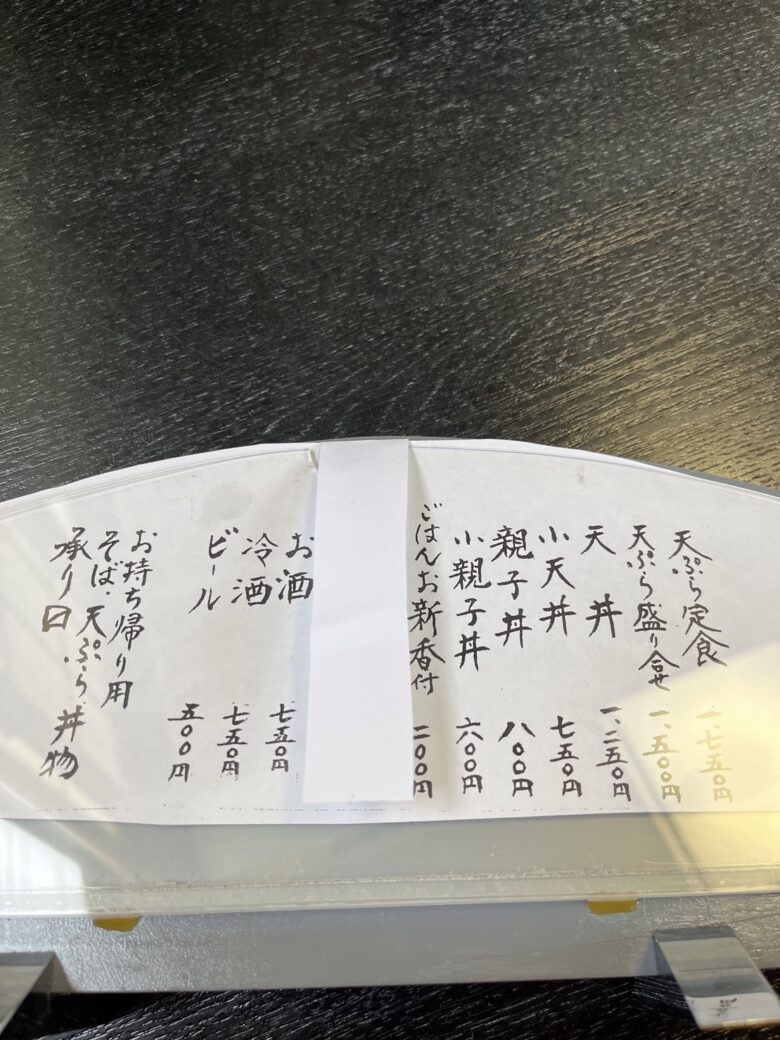 天ぷら定食 一、七五〇円
天ぷら盛り合せ 一、五〇〇円
天丼 一、二五〇円
小天丼 七五〇円
親子丼 八〇〇円
小親子丼 六〇〇円
ごはんお新香付 二〇〇円
お酒 七五〇円
冷酒 七五〇円
ビール 五〇〇円
お持ち帰り用
そば・天ぷら 丼物
承り〼